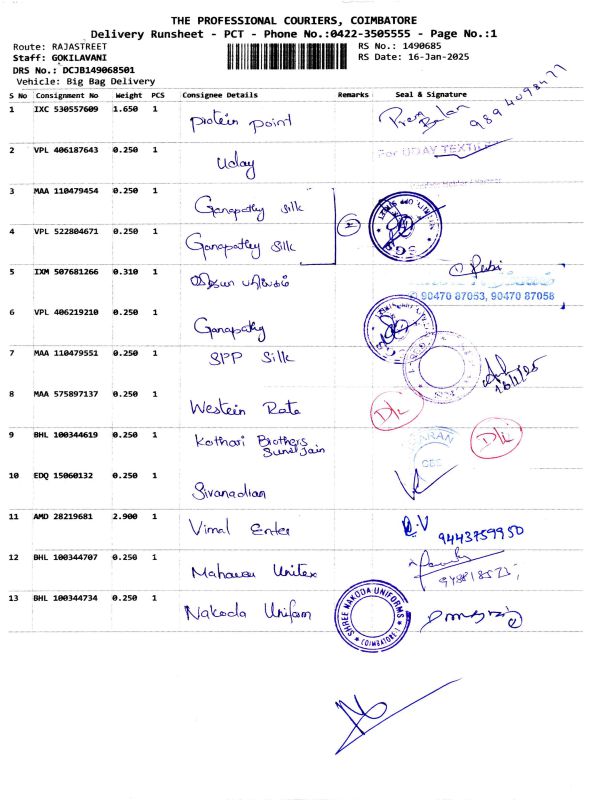 THE PROFESSIONAL COURIERS, COIMBATORE
Delivery Runsheet - PCT - Phone No.:0422-3505555 - Page No.:1
Route: RAJASTREET
RS No.: 1490685
Staff: GOKILAVANI
RS Date: 16-Jan-2025
DRS No.: DCJB149068501
Vehicle: Big Bag Delivery
S No Consignment No Weight PCS Consignee Details Remarks Seal & Signature
1 IXC 530557609 1.650 1 Protein point Prem Balan 9894098477
2 VPL 406187643 0.250 1 Uday For UDAY TEXTILE
3 MAA 110479454 0.250 1 Ganapathy Silk
4 VPL 522804671 0.250 1 Ganapathy Silk
2
SGS
5 IXM 507681266 0.310 1
90470 87053, 90470 87058
6 VPL 406219210 0.250 1 Ganapathy
7 MAA 110479551 0.250 1 SPP Silk
8 MAA 575897137 0.250 1 Westein Rate D/L
9 BHL 100344619 0.250 1 Kothari Brothers D/L
Sunil Jain
10 EDQ 15060132 0.250 1 Sivanadian
11 AMD 28219681 2.900 1 Vimal Enter R.V
9443759950
12 BHL 100344707 0.250 1 Mahaveer Unitex
13 BHL 100344734 0.250 1 Nakoda Uniform
SHREE NAKODA UNIFORMS
(COIMBATORE)